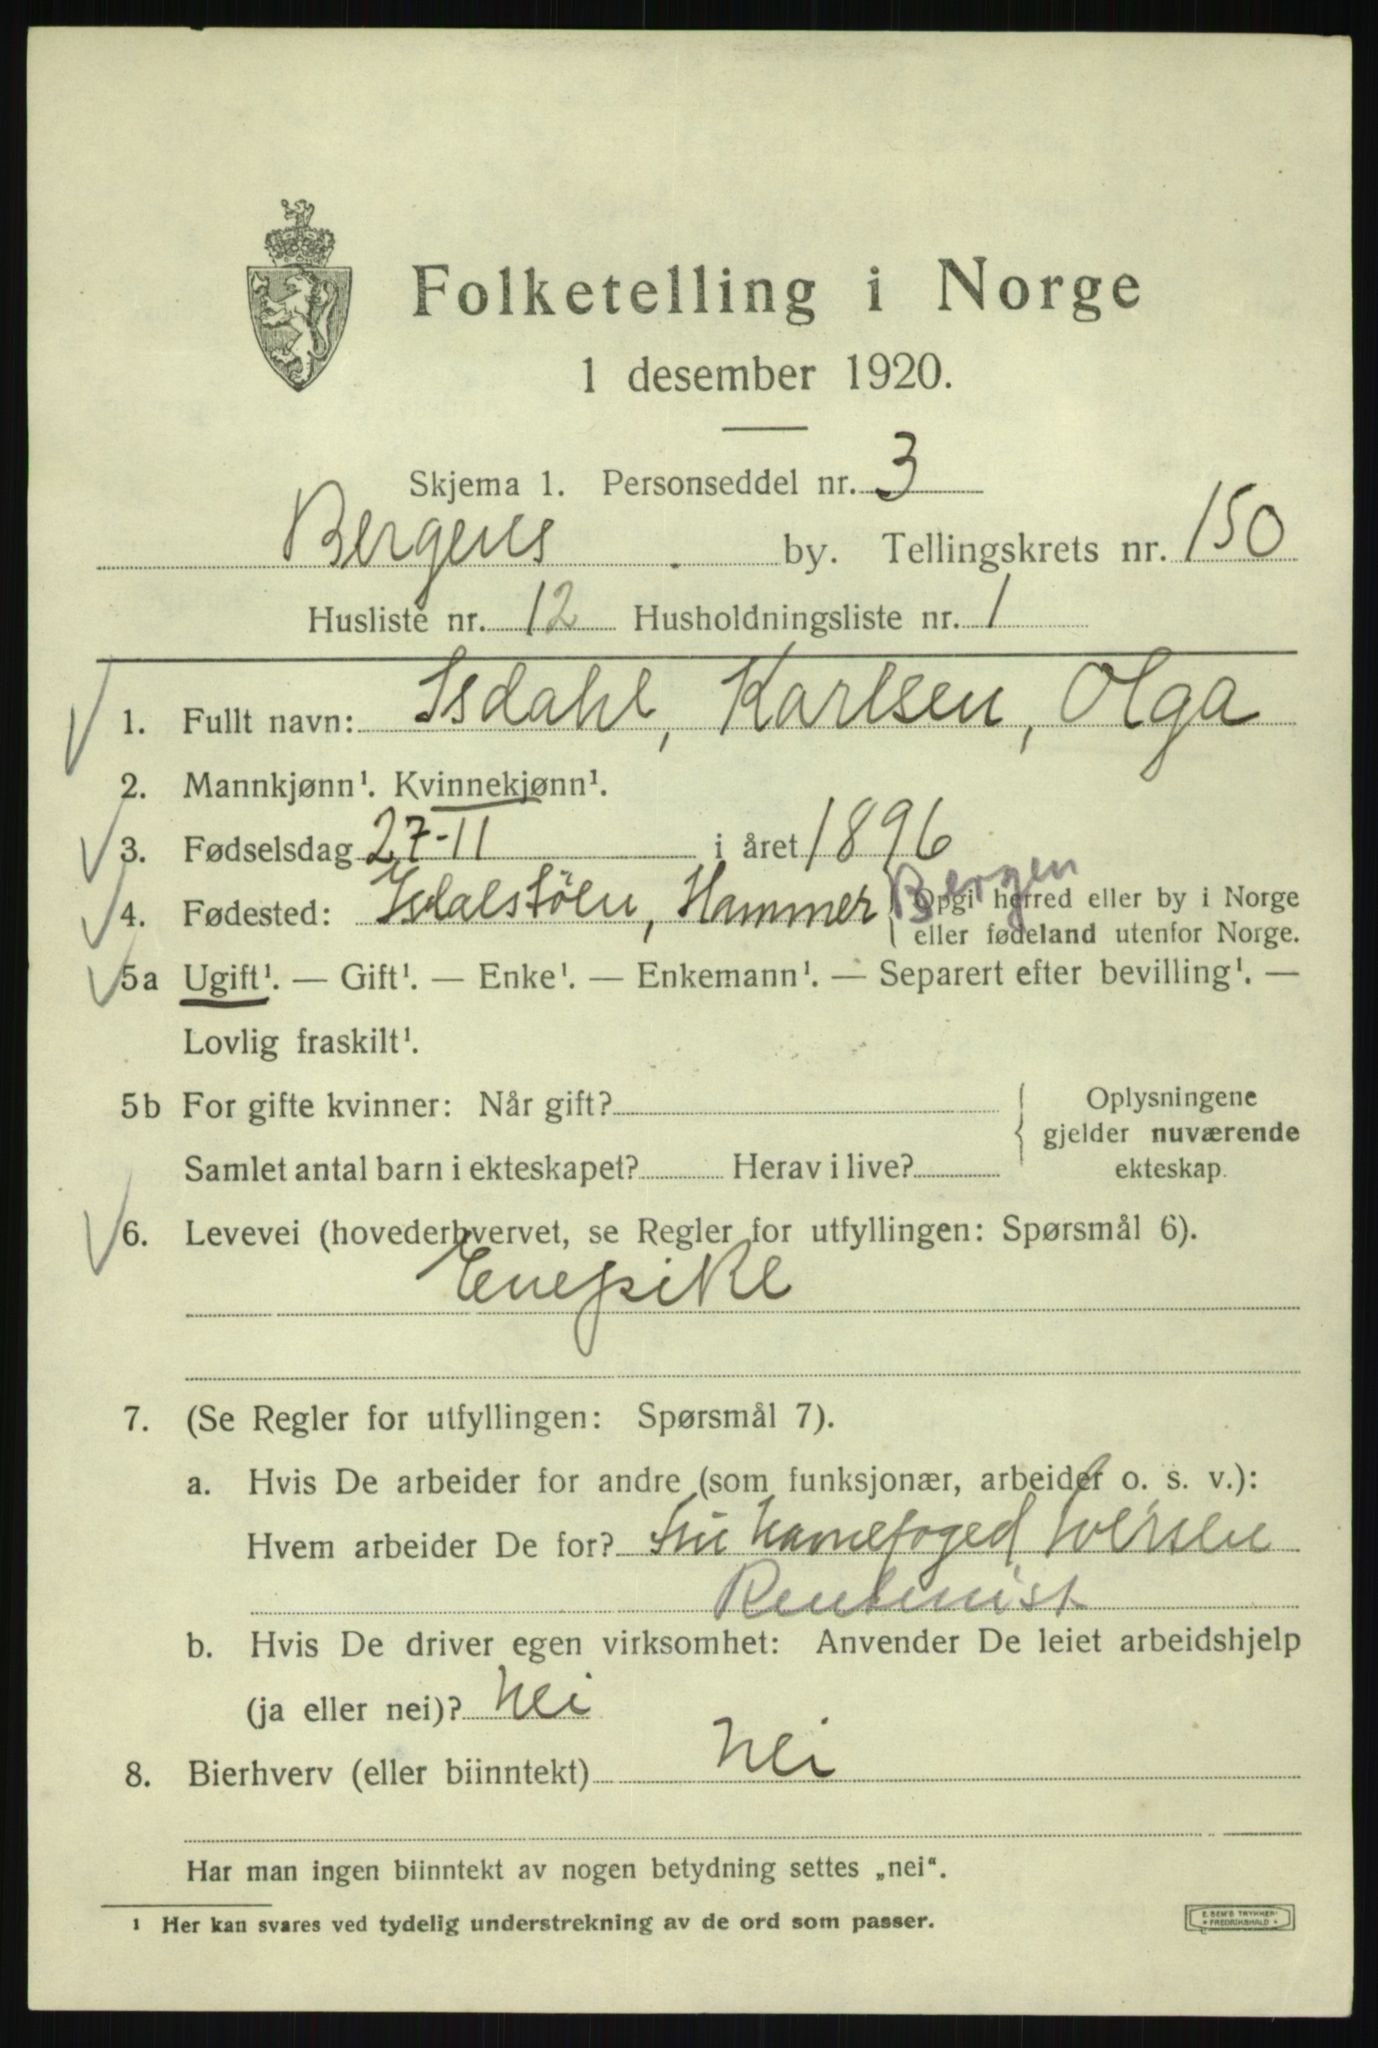 Folketelling i Norge
1 desember 1920.
Skjema 1. Personseddel nr. 3
Bergens by. Tellingskrets nr. 150
Husliste nr. 12 Husholdningsliste nr. 1
1. Fullt navn: Isdahl, Karlsen, Olga
2. Mannkjønn¹. Kvinnekjønn¹.
3. Fødselsdag 27-11 i året 1896
4. Fødested: Isdalstöen, Hammer Bergen
Opgi herred eller by i Norge
eller fødeland utenfor Norge.
5a Ugift¹. — Gift¹. — Enke¹. — Enkemann¹. — Separert efter bevilling¹. —
Lovlig fraskilt¹.
5b For gifte kvinner: Når gift?
Samlet antal barn i ekteskapet? Herav i live?
Oplysningene
gjelder nuværende
ekteskap.
6. Levevei (hovederhvervet, se Regler for utfyllingen: Spørsmål 6).
Enepike
7. (Se Regler for utfyllingen: Spørsmål 7).
a. Hvis De arbeider for andre (som funksjonær, arbeider o. s. v.):
Hvem arbeider De for? havnefoged Iversen
Rentenist
b. Hvis De driver egen virksomhet: Anvender De leiet arbeidshjelp
(ja eller nei)? Nei
8. Bierhverv (eller biinntekt) Nei
Har man ingen biinntekt av nogen betydning settes „nei“.
¹ Her kan svares ved tydelig understrekning av de ord som passer.
E. SEM'S TRYKKERI
• FREDRIKSHALD •